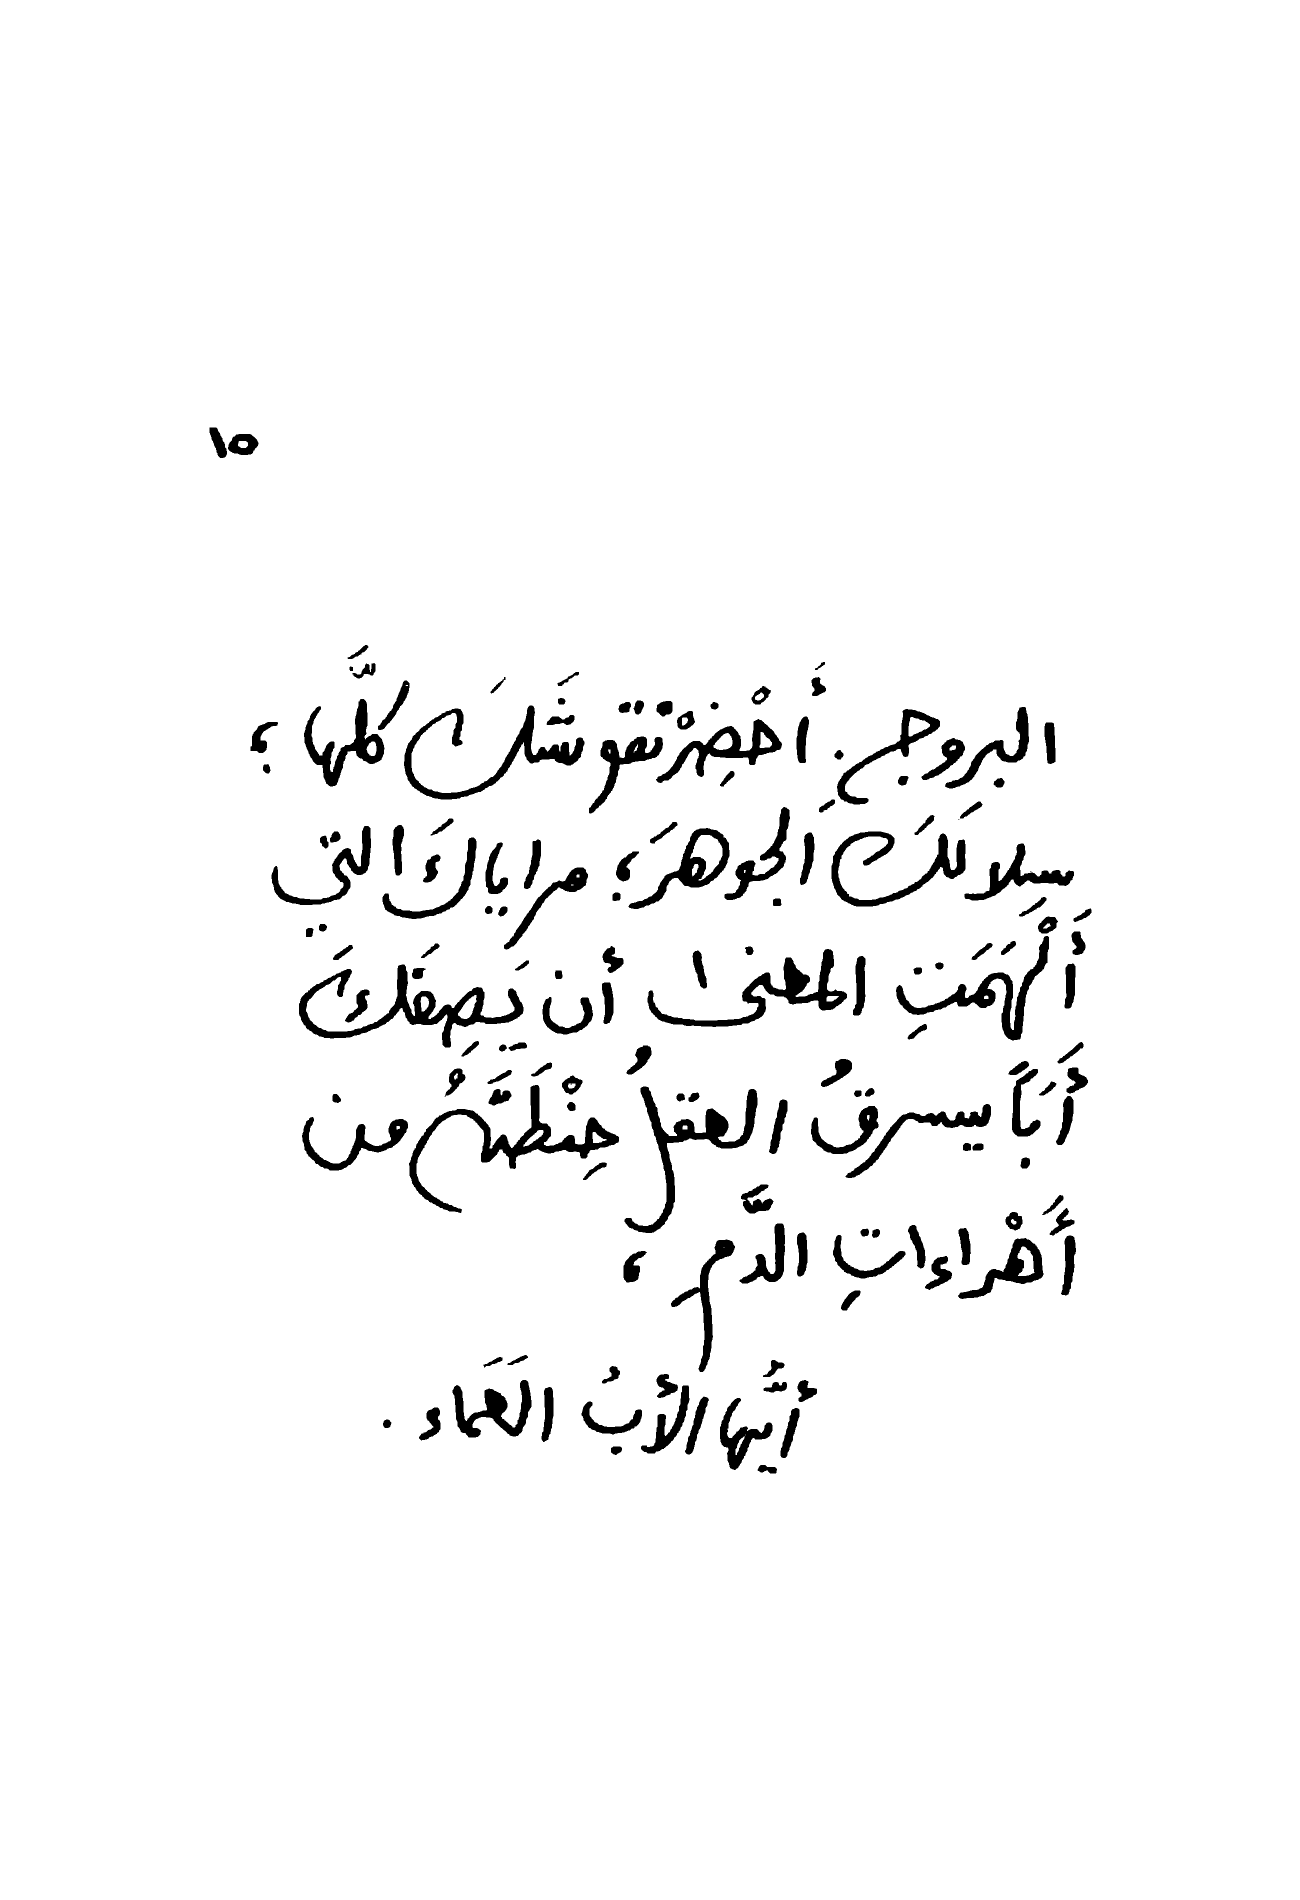 ١٥
البروج. أَحْضِرْ نقوشَكَ كلَّها؛
سلالَكَ الجوهرَ؛ مراياكَ التي
أَلْهَمَتِ المعنى أن يَصِفَكَ
أَبَاً يسرقُ العقلُ حِنْطَتَهُ من
أَهْراءاتِ الدَّمِ،
أيُّها الأبُ العَمَاء.